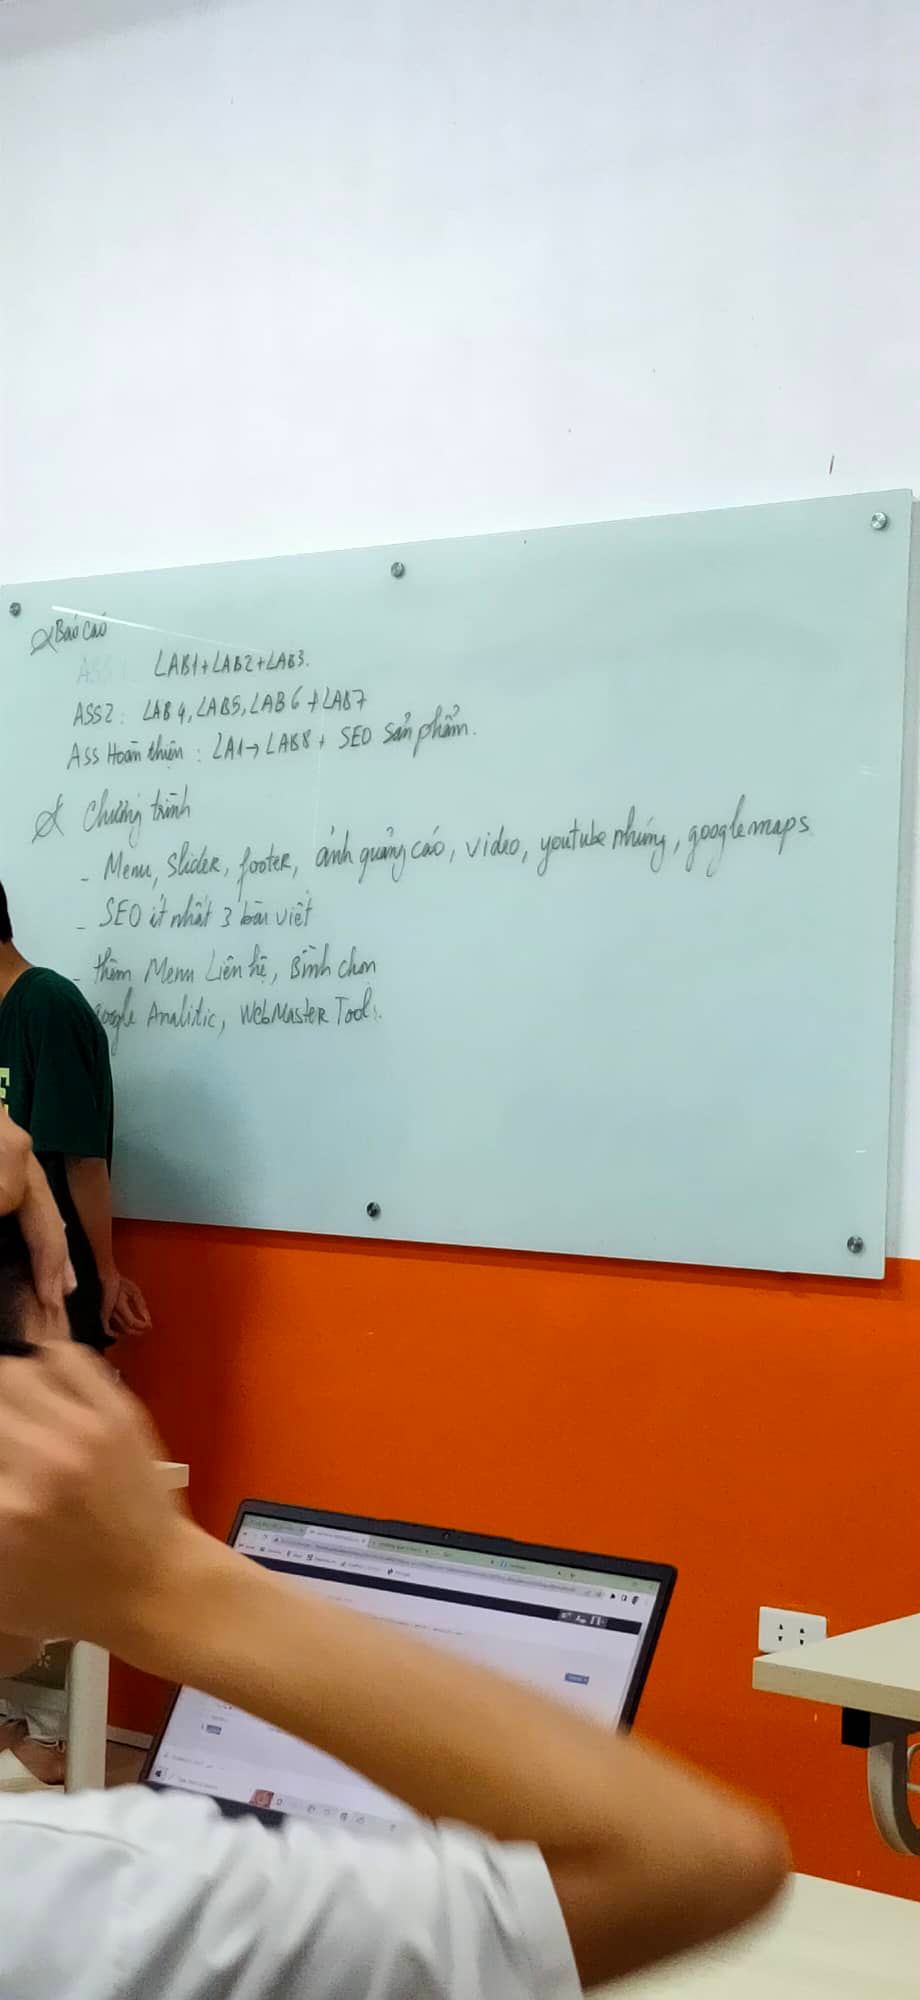 Báo cáo
ASS LAB1+LAB2+LAB3.
ASS2: LAB4, LAB5, LAB6 + LAB7
Ass Hoàn thiện : LA1→LAB8 + SEO sản phẩm.
Chương trình
- Menu, slider, footer, ảnh quảng cáo, video, youtube nhúng, googlemaps
- SEO ít nhất 3 bài viết
- thêm Menu Liên hệ, Bình chọn
oogle Analitic, WebMaster Tool